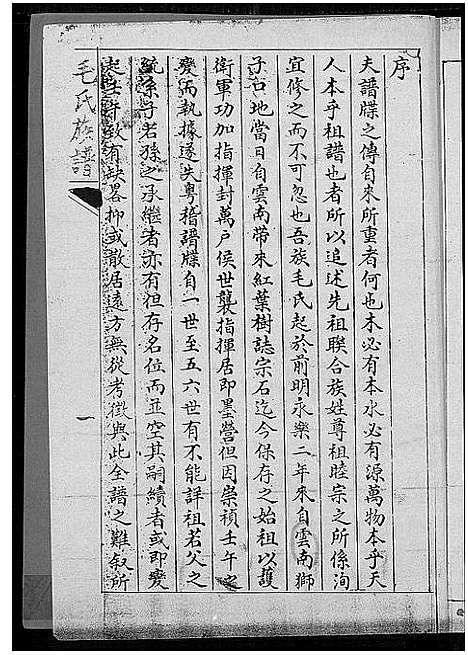 序
夫譜牒之傳自來所重者何也木必有本水必有源萬物本乎天
人本乎祖譜也者所以追述先祖聯合族姓尊祖睦宗之所係洵
宜修之而不可忽也吾族毛氏起於前明永樂二年來自雲南獅
子口地當日自雲南帶來紅葉樹誌宗石迄今保存之始祖以護
衛軍功加指揮封萬戶侯世襲指揮居即墨營但因崇禎壬午之
變而執據遂失粵稽譜牒自一世至五六世有不能詳祖若父之
孫子若孫之承繼者亦有但存名位而並空其嗣續者或即變
有缺畧抑或散居遠方無從考徵與此全譜之難叙所
毛氏族譜
一